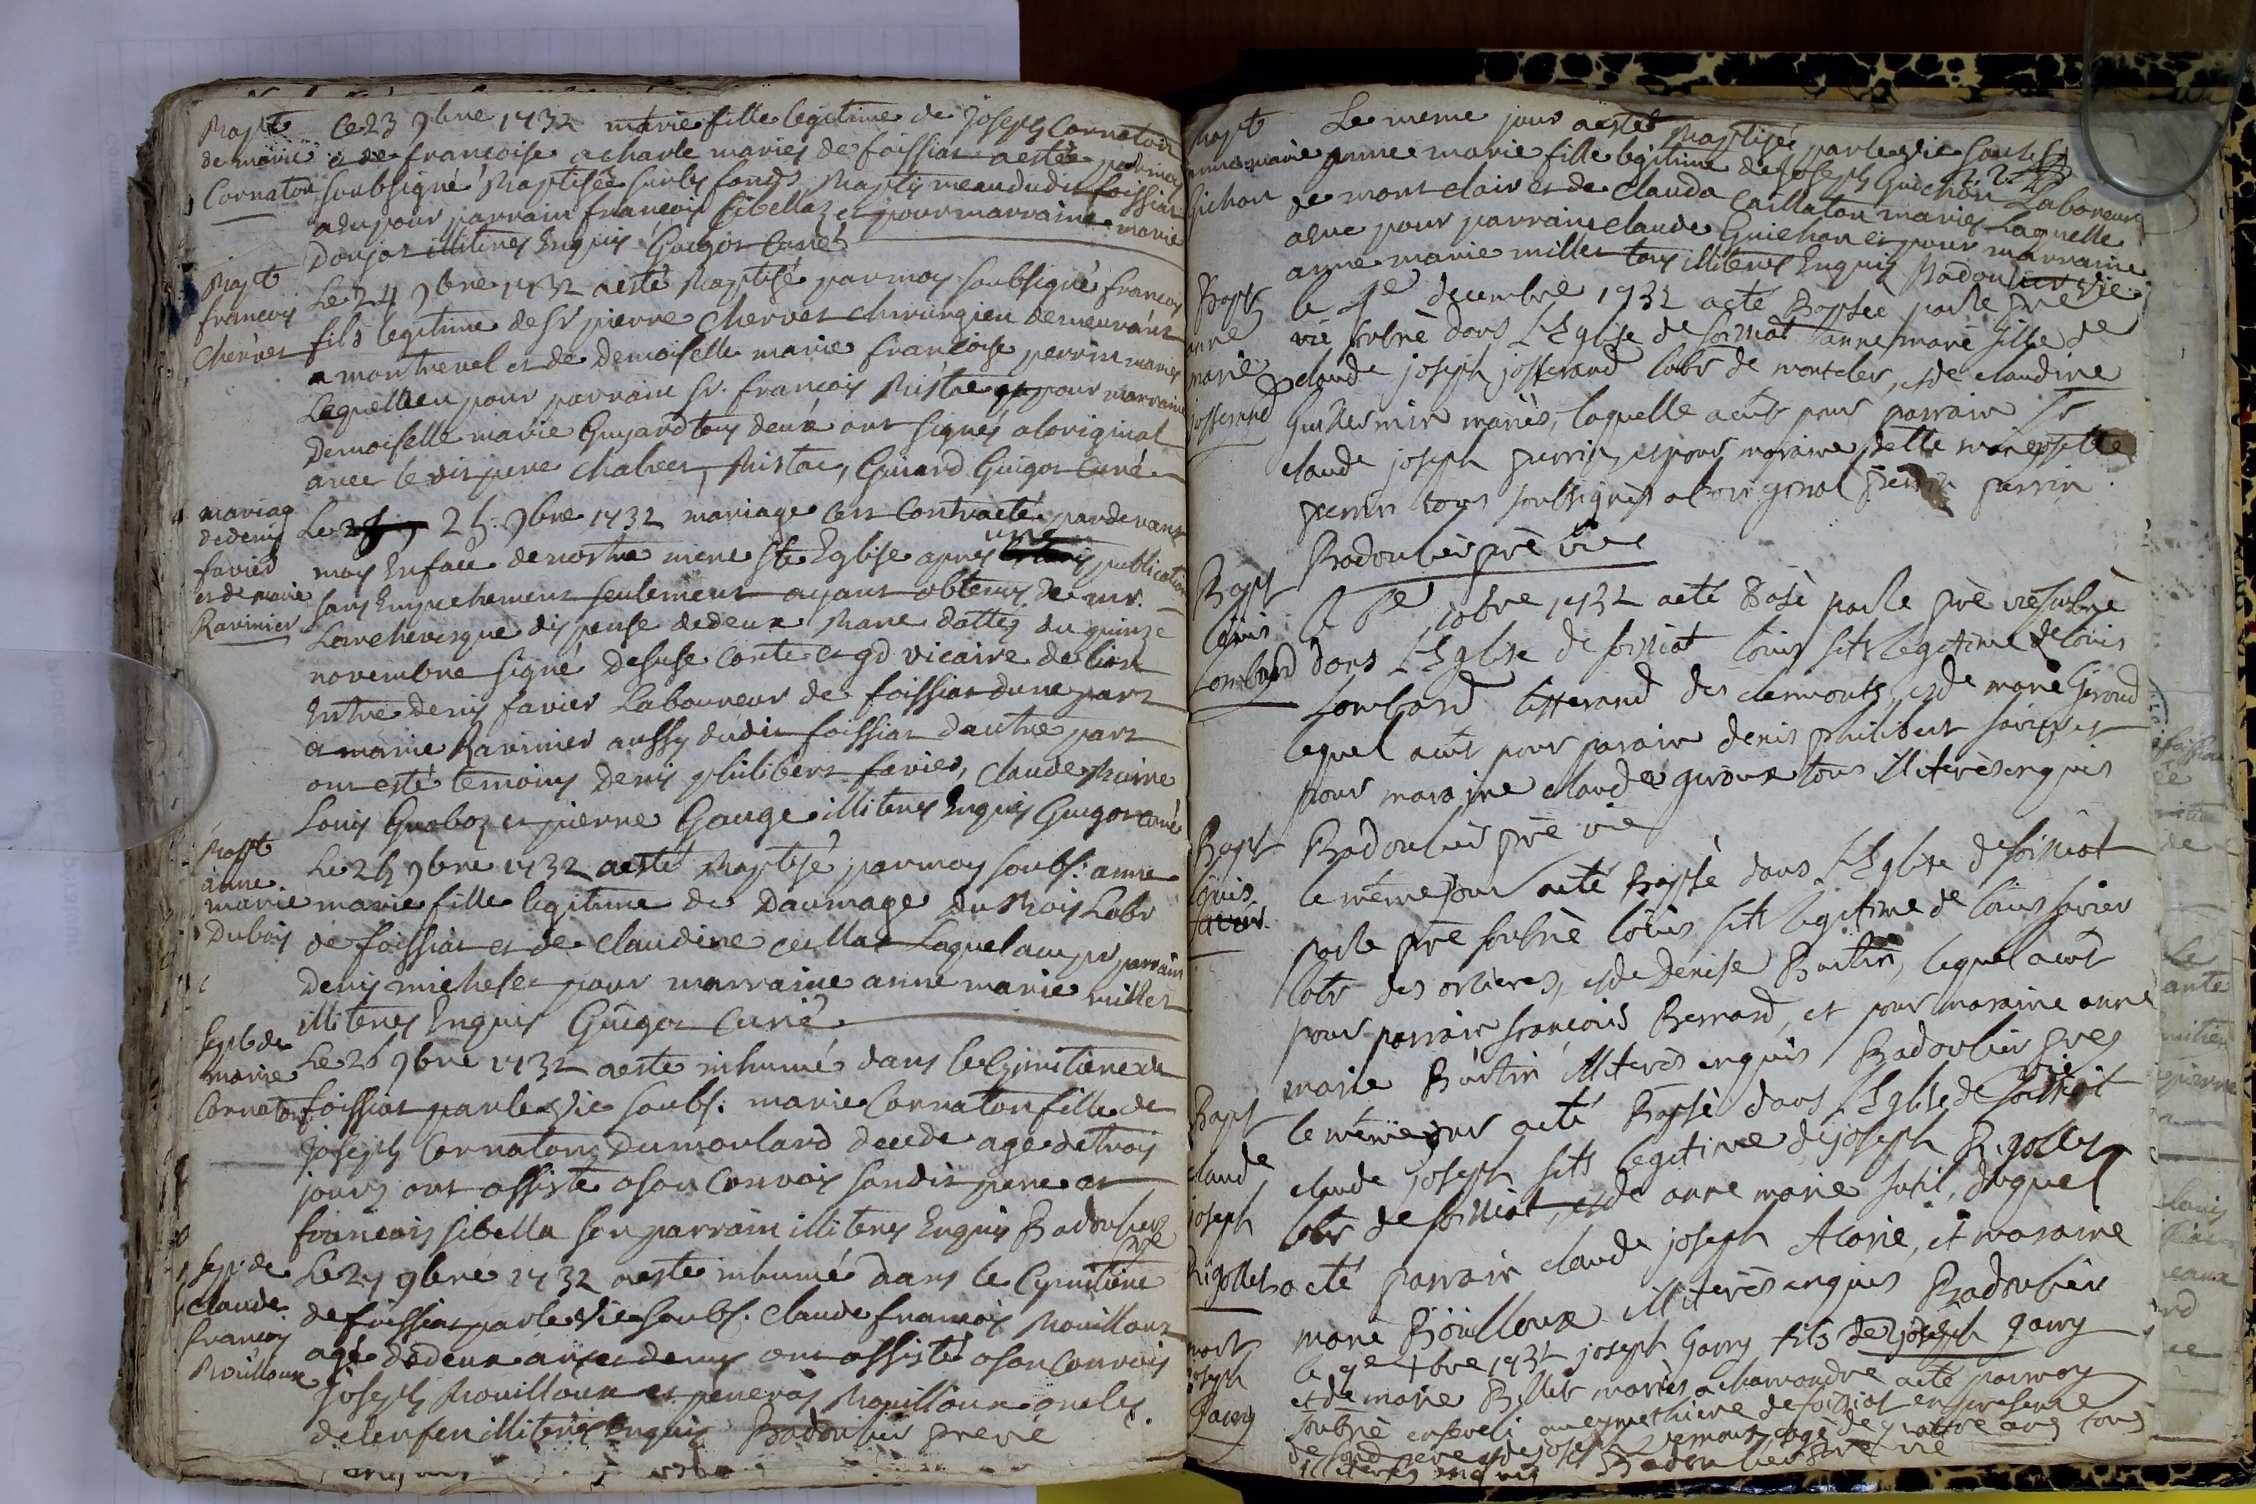 Bapt
de marie
Cornaton
Le 23 9bre 1732 marie fille legitime de Joseph Cornaton
et de francoise acharle mariés de foissiat aestée par moy
soubsigné Baptisée sur les fonds Baptismeaux dudit foissiat
a eu pour parrain francois sibellaz et pour marraine marie
Donjat illiteres Enquis Guigot Curé
Bapt
francois
Chervet
Le 24 9bre 1732 aesté Baptisé par moy soubsigné francois
fils legitime de Sr pierre Chervet chirurgien demeurant
a montrevel et de Demoiselle marie francoise perrin mariés
Lequel a eu pour parrain Sr. francois Mistae et pour marraine
Demoiselle marie Guyard tous deux ont signés aloriginal
avec le dit pere Chalvet, Mistae, Guiard Guigot Curé
mariag
de denis
favier
et de marie
Ravinier
Le 25 9bre 1732 mariage cest Contracté par devant
moy En face de nostre mere Ste Eglise apres une publication
sans Empechement seulement ayant obtenus de mr.
Larchevesque dispense de deux Bans dattés du quinze
novembre signé deseuse conte et gd vicaire de lion
Entre denis favier Laboureur de foissiat dune part
et marie Ravinier aussy dudit foissiat dautre part
ont esté temoins Denis philibert favier, Claude
Louis et pierre Gauge illiteres Enquis Guigot curé
Bapt
anne
marie
Dubois
Le 25 9bre 1732 aesté Baptisé par moy soubs. anne
marie fille legitime de Daumage Du Bois Labr
de foissiat et de claudine Laquel a eu pr parrain
denis michel et pour marraine anne marie millet
illiteres Enquis Guigot Curé
Sept de
marie
Cornaton
Le 26 9bre 1732 aeste inhumée dans le Cymitiere de
foissiat par le Vic soubs. marie Cornaton fille de
Joseph Cornaton Dumoulard decede age de trois
jours ont assisté a son Convois sondit pere et
francois sibella son parrain illiteres Enquis Badoulier
pre
Sep. de
Claude
francois
Bouilloux
Le 27 9bre 1732 aeste inhumé dans le Cymitiere
de foissiat par le Vic soubs. claude francois Bouilloux
agé de deux ans et demy ont assisté a son Convois
Joseph Bouilloux et Bouilloux oncles
de lenfen illiteres Enquis Badoulier pre vé
Bapt
anne marie
Gichon
Le meme jour aesté Baptisée par le Vic soubs
anne marie fille legitime de Joseph Guichon Laboureur
de mont clair et de Clauda Caillaton mariés Laquelle
a eue pour parrain claude Guichon et pour marraine
anne marie millet tous illiteres Enquis Badoulier vic
Bapt
anne
marie
josserand
le 4e decembre 1732 a eté Baptsee par le pré
vic sousné dans L'Eglise de foissiat anne marie fille de
claude joseph josserand labr de montcler, et de claudine
Guillermin mariés, laquelle a eut pour parrain Sr
claude joseph perrin, et pour maraine delle marie
perrin tous soubsignés a loriginal perrin perrin
Badoulier prê vic
Bapt
louis
Lombard
le 6e 10bre 1732 a eté Batsé par le pré vic sousné
dans L'Eglise de foissiat louis fils legitime de louis
Lombard tisserand des clermonts, et de marie Giroud
lequel a eut pour parain denis philibert favier et
pour maraine claude giroux tous illiterés enquis
Badoulier prê vic
Bapt
louis
favier
le même jour a eté Baptsé dans L'Eglise de foissiat
par le pré sousné louis fils legitime de louis favier
labr des orlieres, et de Denise Burtin, lequel a eut
pour parrain françois Berrard, et pour maraine anne
marie Burtin illiterés enquis Badoulier pré
vic
Bapt
claude
joseph
Rigollet
le même jour a eté Baptsé dans L'Eglise de foissiat
claude joseph fils legitime de joseph Rigollet
labr de foissiat, et de anne marie sutil, duquel
a eté parrain claude joseph Alarie, et maraine
marie Boüilloux illiterés enquis Badoulier
mort
joseph
Garry
le 9e Xbre 1732 joseph Garry fils de joseph garry
et de marie Billet mariés a chamandre a eté par moy
soubné enseveli au cymethiere de foissiat en presence
de son pere et de joseph Vemont agé de quattre ans tous
illiteres enquis Badoulier pre vic